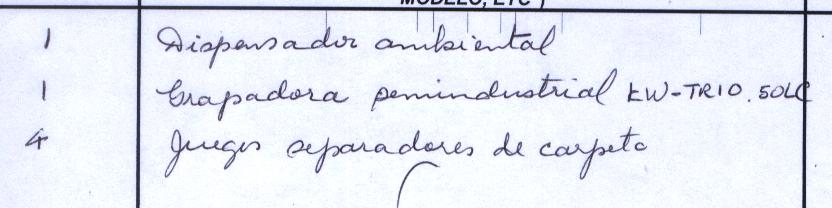 MODELO, ETC )
1 Dispensador ambiental
1 Grapadora semindustrial KW-TRIO.
4 Juegos separadores de carpeta